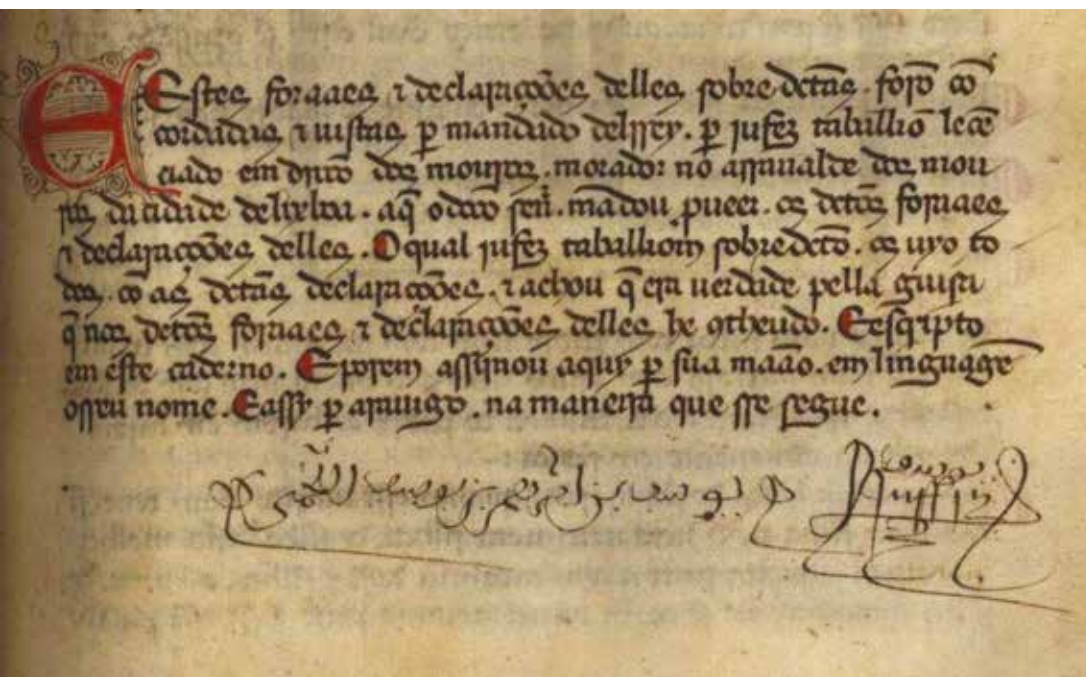 Estes foraaes ⁊ declaraçoões delles sobredctãs . forõ cõ
cordadas ⁊ uistas p mandado delrrey . p jufez taballiõ lecẽ
ciado em drcto dos mouros . morador no arraualde dos mou
ros da cidade de lixboa . aq̃ o dcto señ . mãdou pueer . os dctos foraaes
⁊ declaraçoões delles . O qual jufez taballiom sobredcto . os uyo to
dos . cõ as dctas declaraçoões . ⁊ achou q̃ era uerdade pella guisa
q̃ nos dctos foraaes ⁊ declaraçoões delles he ɔtheudo . E esc̃pto
em este caderno . E porem assijnou aquy p sua maão . em linguagẽ
o sseu nome . E assy p arauigo . na maneira que sse segue .
يوسف بن ابراهيم بن يوسف
يوسف
Juffiz